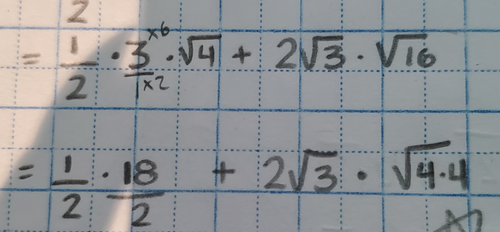 2
= 1/2 · 3^×6/1_×2 · √4 + 2√3 · √16
= 1/2 · 18/2 + 2√3 · √4·4